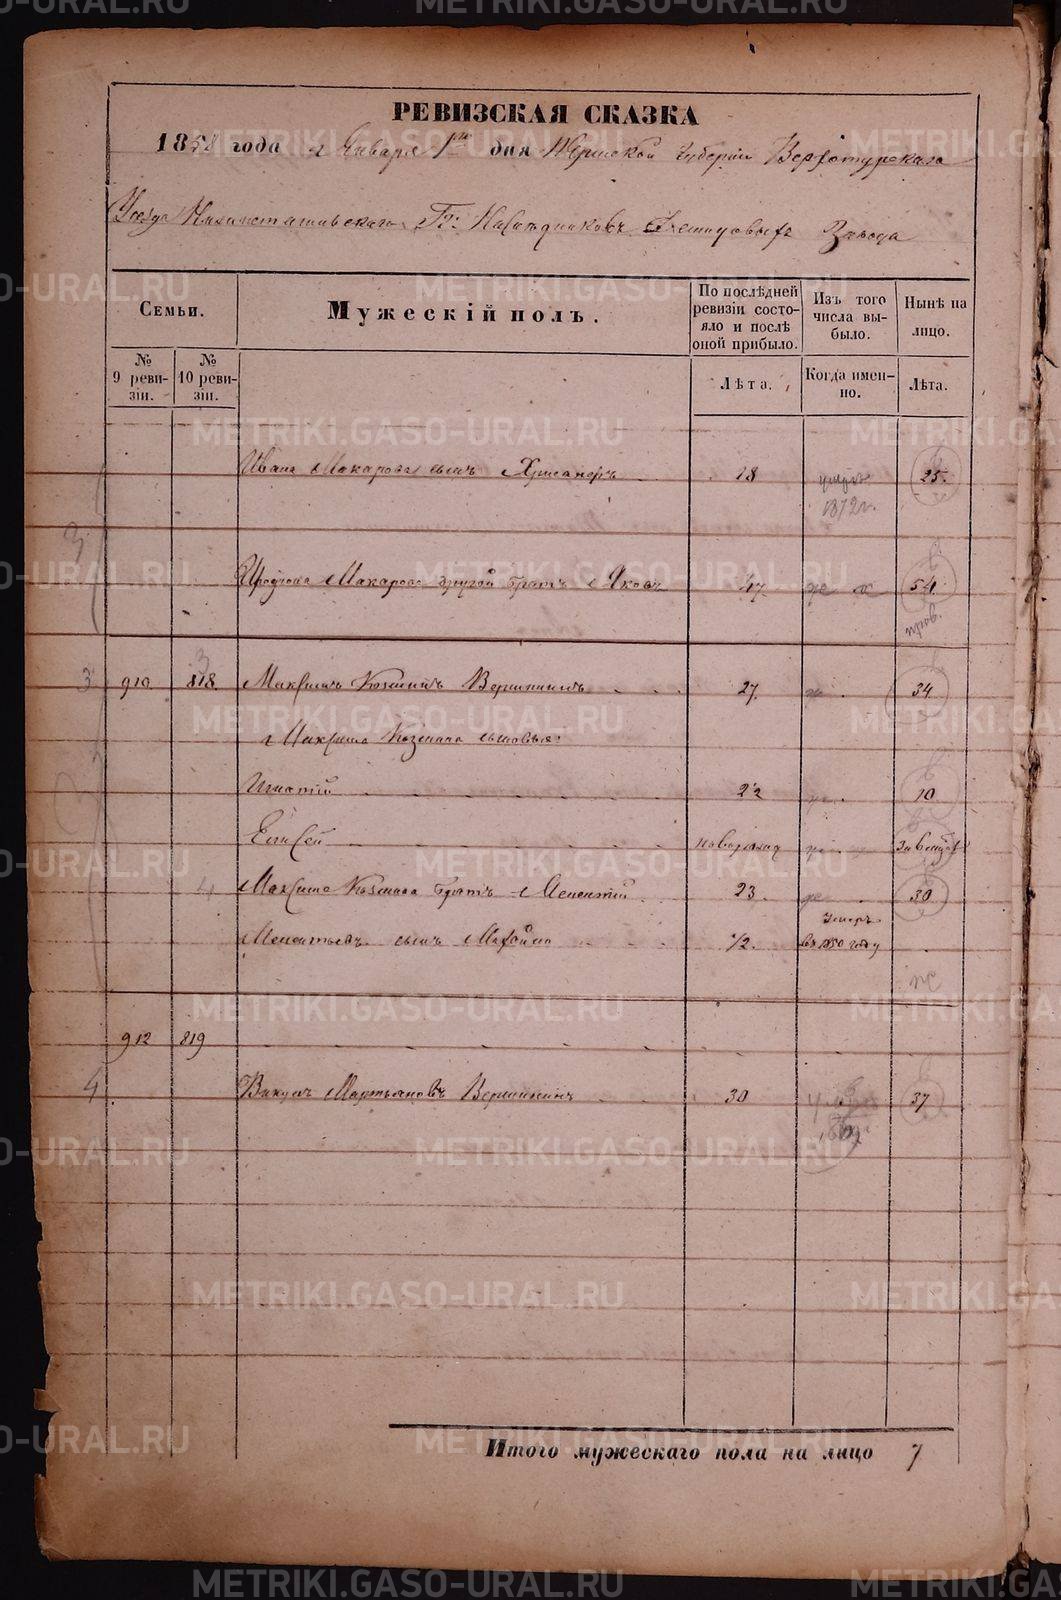 РЕВИЗСКАЯ СКАЗКА
1858 года Января 1го дня Пермской Губернии Верхотурскаго
Уезда Нижнетагильскаго Гг. Наследниковъ Демидовыхъ Завода
Семьи.
Мужескій полъ.
По послѣдней ревизіи состояло и послѣ оной прибыло.
Изъ того числа выбыло.
Нынѣ на лицо.
№ 9 ревизіи.
№ 10 ревизіи.
Лѣта.
Когда именно.
Лѣта.
Ивана Макарова сынъ Хрисанфъ 18 1872г. 25.
Макарова другой братъ Яковъ 47. 54
3 910 818. Максимъ Козминъ Вершининъ 27. 34
Максима Козмина сыновья:
Игнатій 10
Елисей
Максима Козмина братъ Мелентій 23. 30
Мелентьевъ сынъ 1/2. Умеръ въ 1850 году
912 819
4 Викулъ Мартьяновъ Вершининъ 30 37
Итого мужескаго пола на лицо 7
METRIKI.GASO-URAL.RU